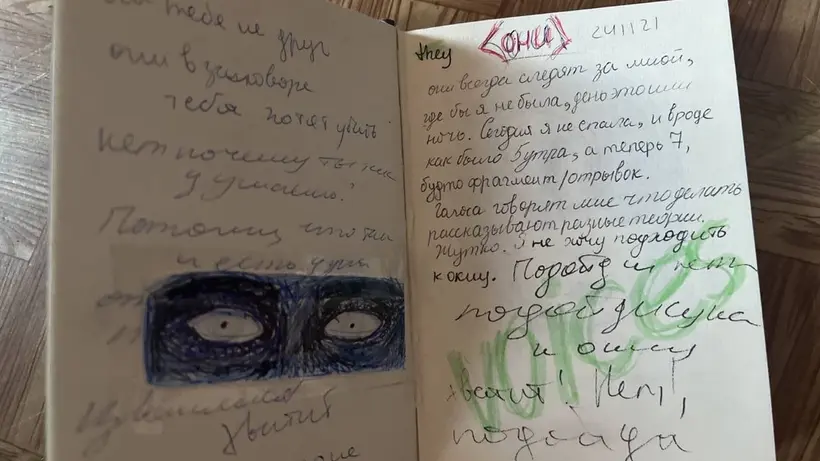 тебе не друг
они в заговоре
тебя хотят убить
нет почему ты так
думаешь?
Потому что так
и есть дура
хватит
they <они> 241121
они всегда следят за мной,
где бы я не была, день это или
ночь. Сегодня я не спала, и вроде
как было 5 утра, а теперь 7,
будто фрагмент/отрывок.
Голоса говорят мне что делать
рассказывают разные теории.
Жутко. Я не хочу подходить
к окну. Подойди нет
подойди сука
к окну
хватит! Нет!,
voices